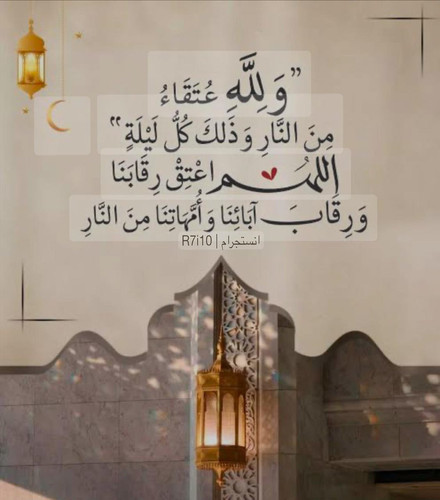 ”وَلِلَّهِ عُتَقَاءُ
مِنَ النَّارِ وَذَلكَ كُلُّ لَيْلَةٍ“
اللهُم اعْتِقْ رِقَابَنَا
وَرِقَابَ آبَائِنَا وَأُمَّهَاتِنَا مِنَ النَّارِ
انستجرام | R7i10